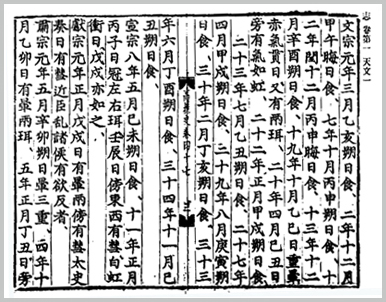 志 卷第一 天文一
文宗元年三月乙亥朔日食 二年十二月
甲午晦日食 七年十月丙申朔日食 十
二年閏十二月丙申晦日食 十三年十二
月辛酉朔日食 十九年十月乙巳日重暈
赤氣貫日又有兩珥 二十年四月己丑日
旁有氣如虹 二十二年正月甲戌朔日食
二十三年七月乙丑朔日食 二十七年
四月甲戌朔日食 二十九年八月庚寅朔
日食 三十年二月丁亥朔日食 三十三
高麗史卷四十七
年六月丁酉朔日食 三十四年十一月己
丑朔日食
宣宗八年五月己未朔日食 十一年正月
丙子日冠左右珥壬辰日傍東西有彗白虹
衝日戊戌亦如之
獻宗元年正月戊戌日有暈兩傍有彗太史
奏日有彗近臣亂諸侯有欲反者
肅宗元年五月辛卯朔日暈三重 四年十
月乙卯日有暈兩珥 五年正月丁丑日旁